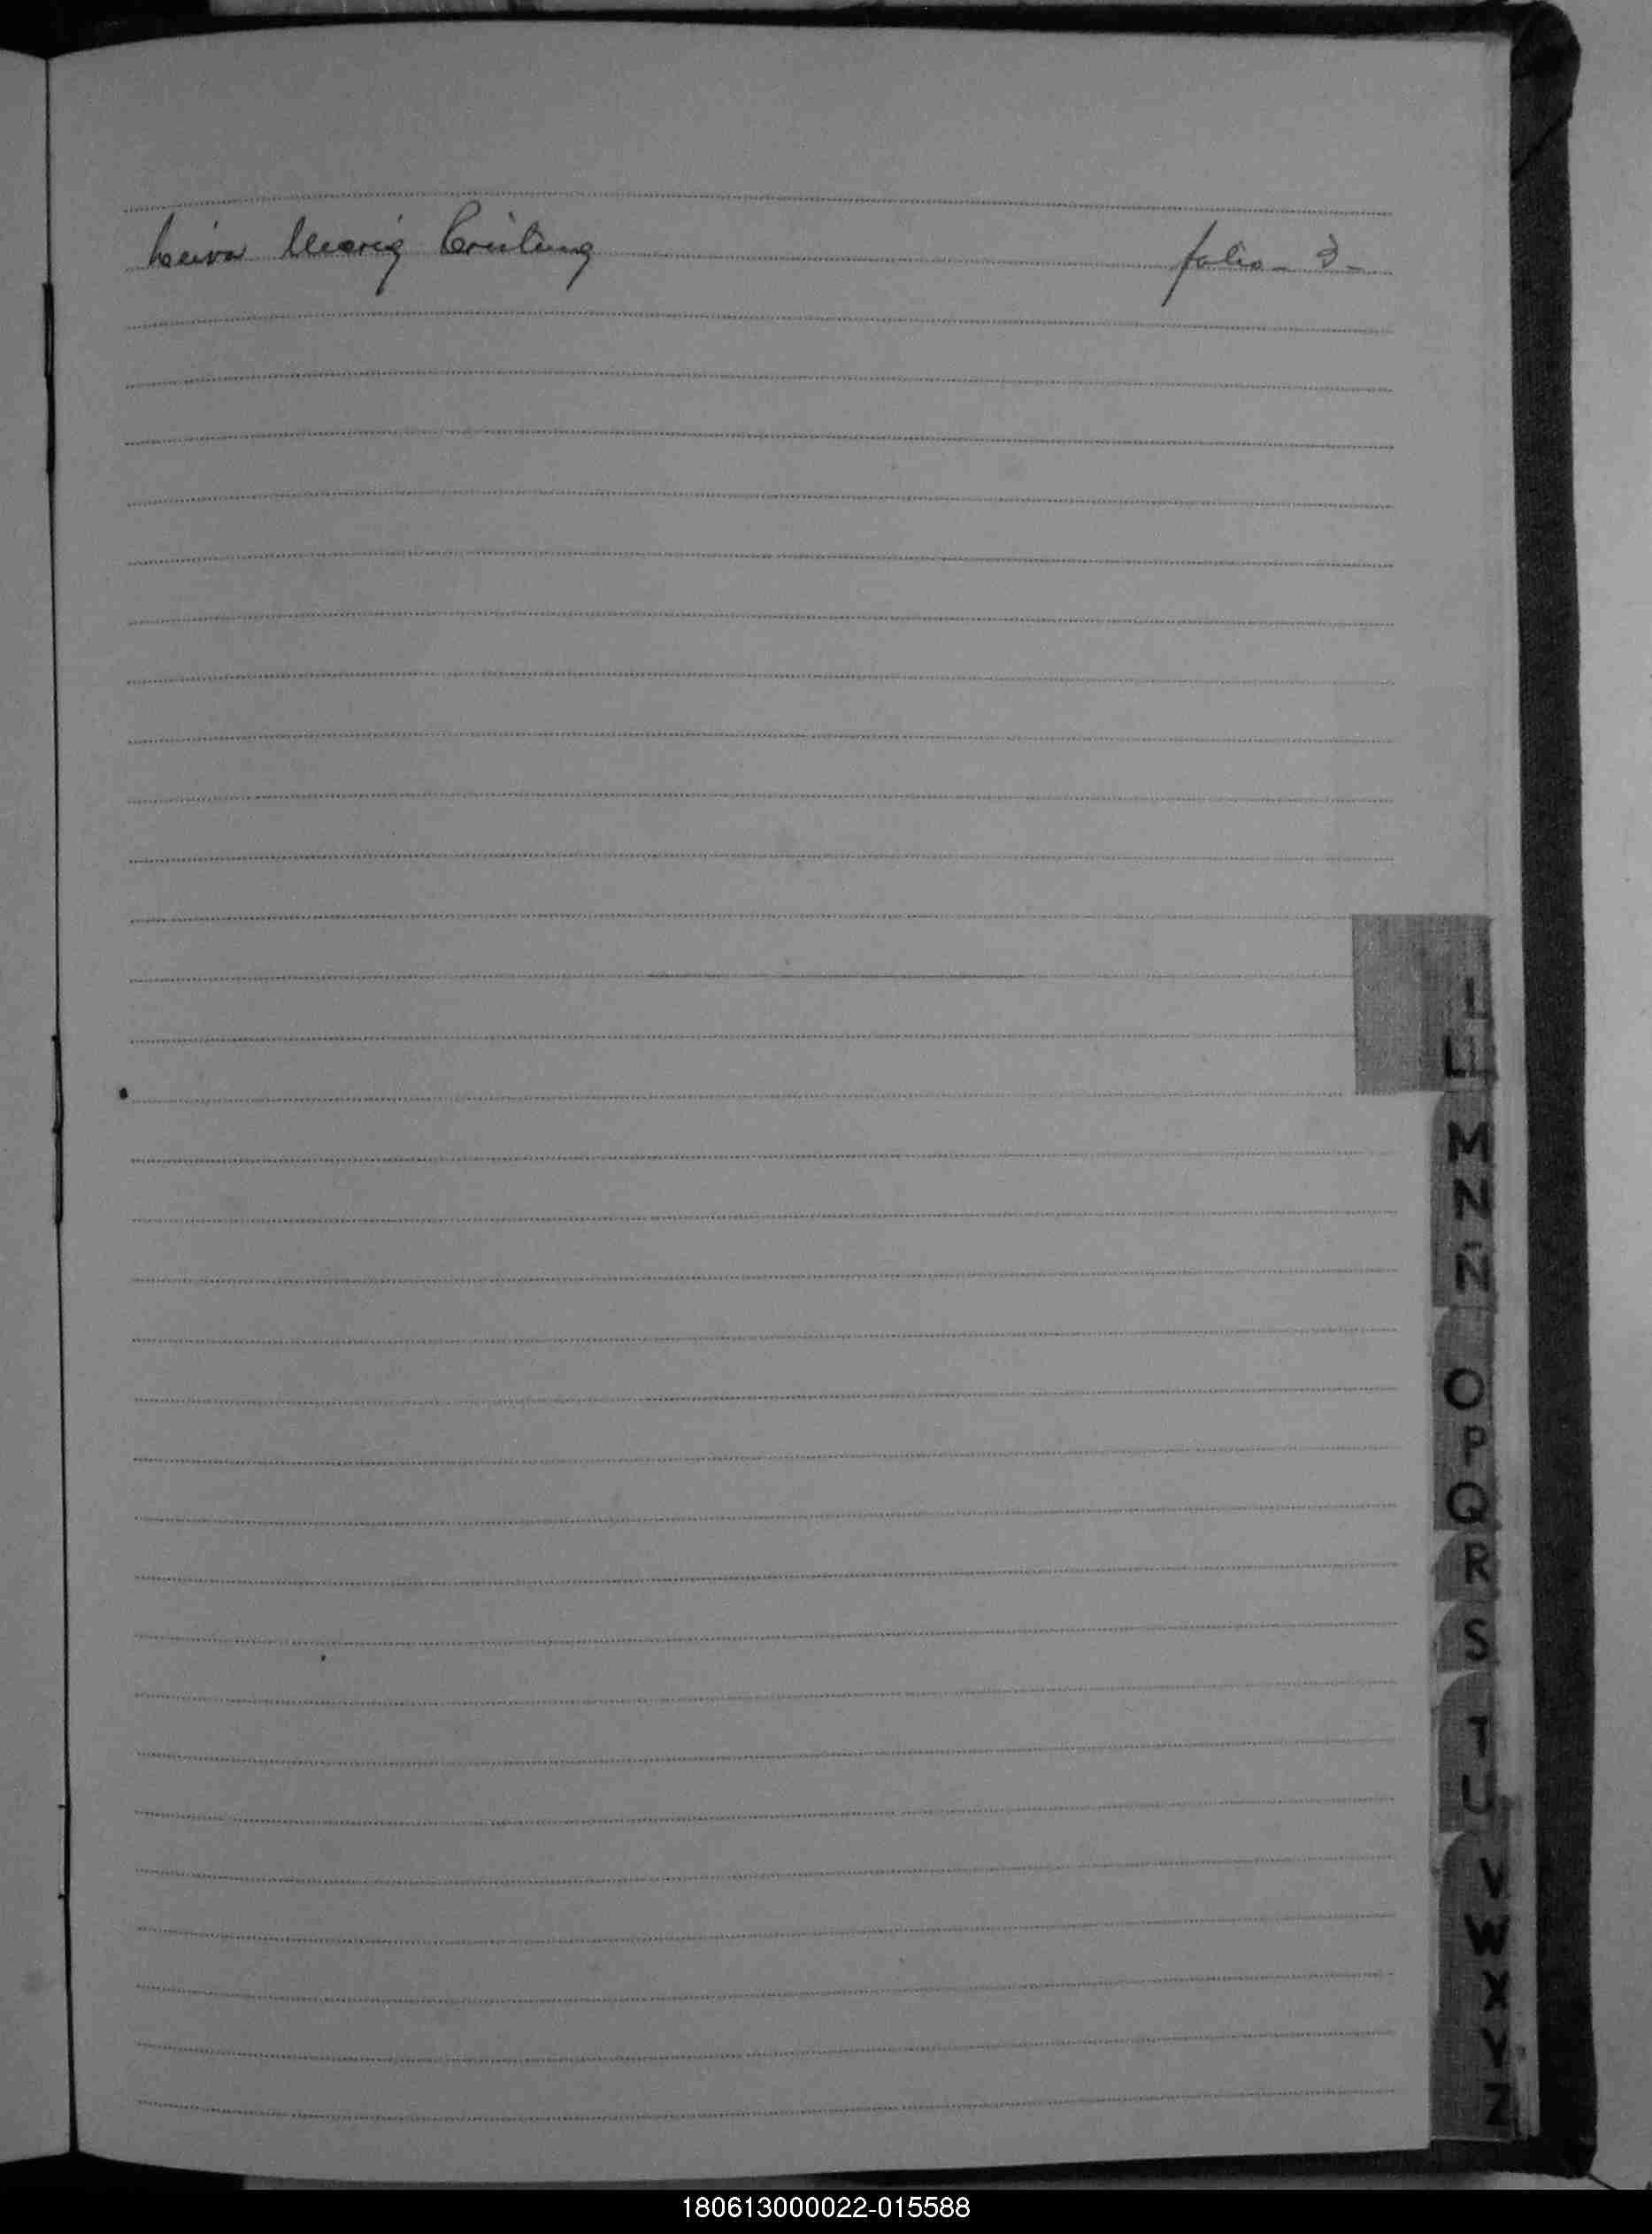 Leiva Maria Cristina folio - 3 -
I
L
M
N
Ñ
O
P
Q
R
S
T
U
V
W
X
Y
Z
180613000022-015588